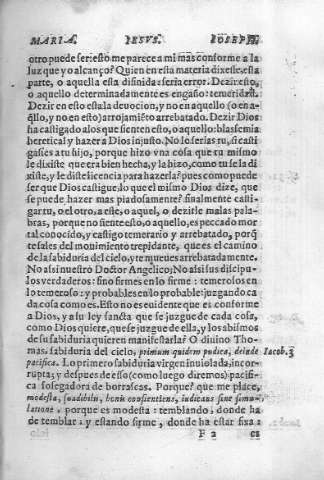 MARIA. IESVS. IOSEPH.
otro puede ser: esto me parece a mi mas conforme a la
luz que yo alcanço? Quien en esta materia dixesse, esta
parte, o aquella està difinida: seria error. Dezir esto,
o aquello determinadamente es engaño: temeridad.
Dezir en esto està la deuocion, y no en aquello (o en a-
q̃llo, y no en esto) arrojamiẽto arrebatado. Dezir Dios
ha castigado a los que sienten esto, o aquello: blasfemia
heretical y hazer a Dios injusto. No lo serias tu, si casti
gasses a tu hijo, porque hizo vna cosa que tu mismo
le dixiste que era bien hecha, y la hizo, como tu se la di
xiste, y le diste licencia para hazerla? pues como puede
ser que Dios castigue, lo que el mismo Dios dize, que
se puede hazer mas piadosamente? finalmente casti-
gar tu, o el otro, a este, o aquel, o dezirle malas palabras,
porque no siente esto, o aquello, es peccado mor
tal conocido, y castigo temerario y arrebatado, porq̃
te sales del mouimiento trepidante, que es el camino
de la sabiduria del cielo, y te mueues arrebatadamente.
No assi nuestro Doctor Angelico; No assi sus discipu-
los verdaderos: sino firmes en lo firme: temerosos en
lo temeroso: y probables en lo probable: juzgando ca
da cosa como es. Esto no es euidente que es conforme
a Dios, y a su ley sancta que se juzgue de cada cosa,
como Dios quiere, que se juzgue de ella, y los abismos
de su sabiduria quieren manifestarla? O diuino Tho-
mas, sabiduria del cielo, primum quidem pudica, deinde Iacob. 3
pacifica. Lo primero sabiduria virgen inuiolada, incor-
rupta; y despues de esso (como luego diremos) pacifi-
ca sosegadora de borrascas. Porque? que me place,
modesta, suadibilis, bonis consentiens, iudicans sine simu-
latione, porque es modesta: temblando, donde ha
de temblar: y estando firme, donde ha de estar fixa:
F 2 es